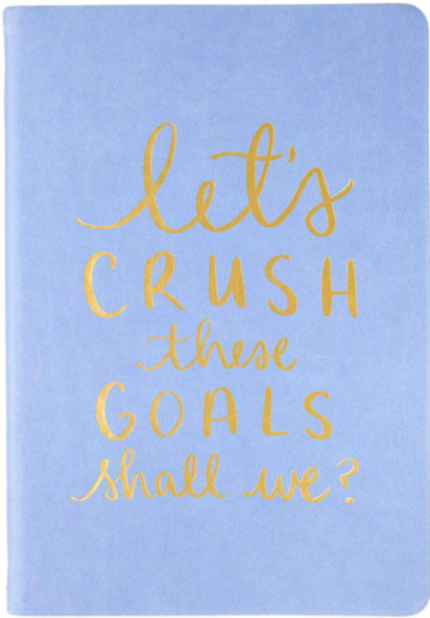 let's
CRUSH
these
GOALS
shall we?